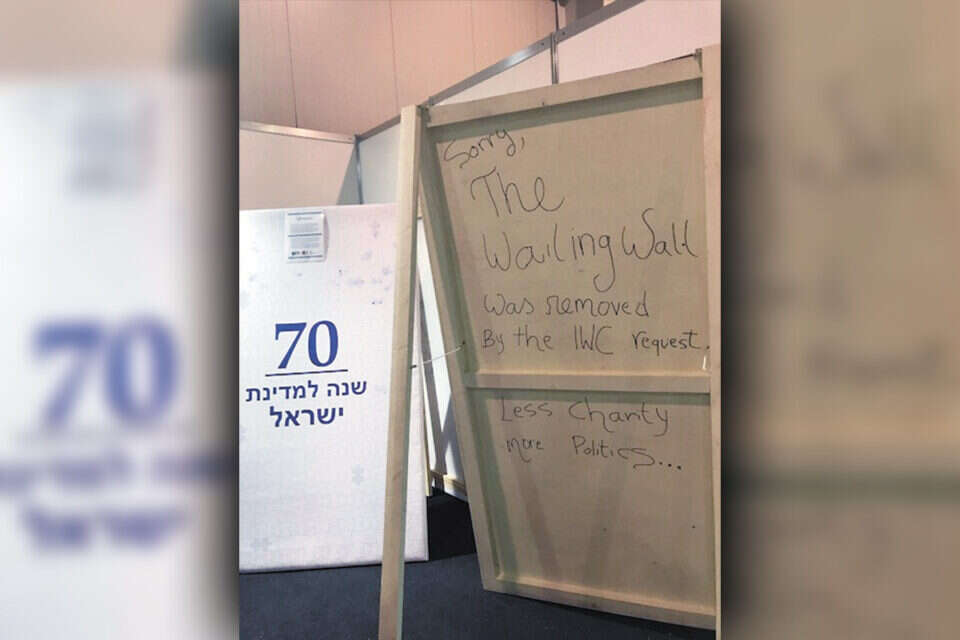 70
שנה למדינת
ישראל
Sorry,
The
Wailing Wall
was removed
By the IWC request.
Less Charity
more Politics...